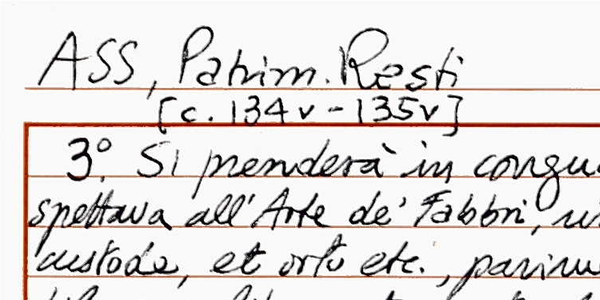 ASS, Patrim. Resti
[c. 134v - 135v]
3°. Si prenderà in congu
spettava all'Arte de' Fabbri, un
custode, et orto etc., parim